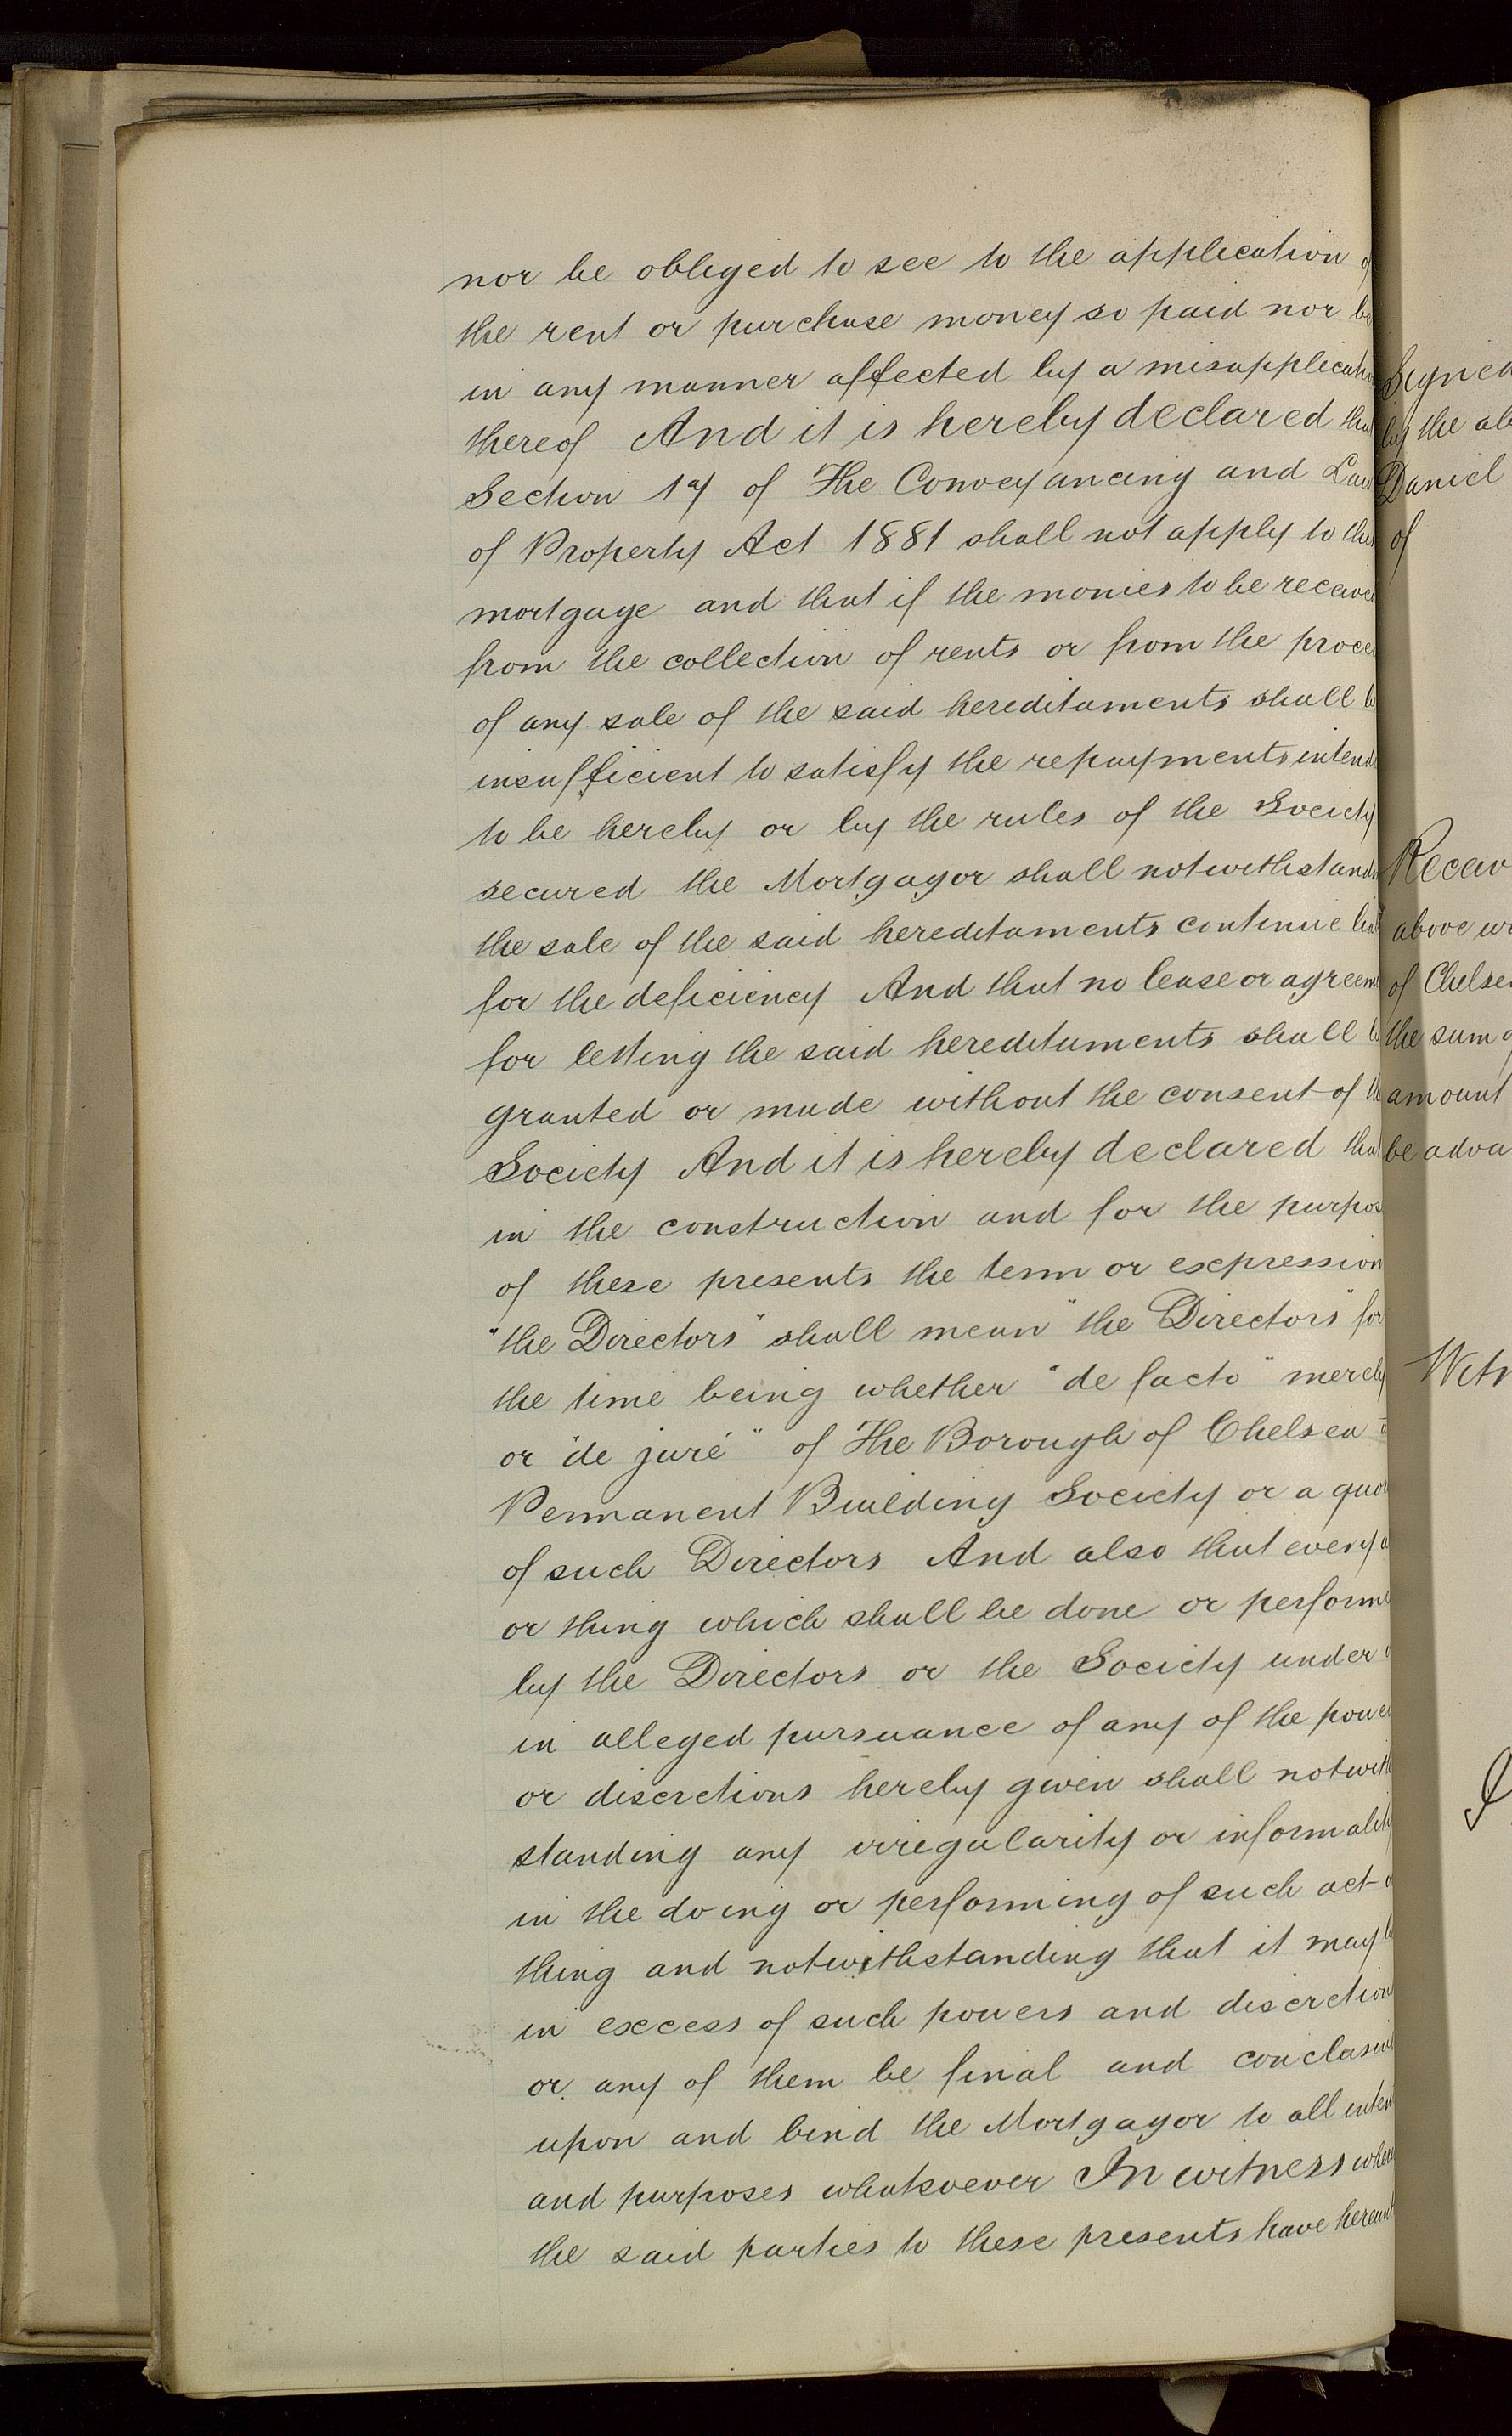 nor be obliged to see to the application of
the rent or purchase money so paid nor be
in any manner affected by a misapplicatio
thereof And it is hereby declared that
Section 17 of The Conveyancing and Law
of Property Act 1881 shall not apply to this
mortgage and that if the monies to be receive
from the collection of rents or from the procee
of any sale of the said hereditaments shall be
insufficient to satisfy the repayments intend
to be hereby or by the rules of the Society
secured the Mortgagor shall notwithstandi
the sale of the said hereditaments continue liab
for the deficiency And that no lease or agreeme
for letting the said hereditaments shall be
granted or made without the consent of th
Society And it is hereby declared that
in the construction and for the purpos
of these presents the term or expression
"the Directors" shall mean "the Directors" for
the time being whether "de facto" merely
or "de juré" of The Borough of Chelsea
Permanent Building Society or a quor
of such Directors And also that every a
or thing which shall be done or performe
by the Directors or the Society under o
in alleged pursuance of any of the power
or discretions hereby given shall notwith
standing any irregularity or informality
in the doing or performing of such act o
thing and notwithstanding that it may b
in excess of such powers and discretion
or any of them be final and conclusive
upon and bind the Mortgagor to all inten
and purposes whatsoever In witness where
the said parties to these presents have hereunt
Signed
by the ab
Daniel
of
Receiv
above wr
of Chelsea
the sum o
amount
be adva
Witn